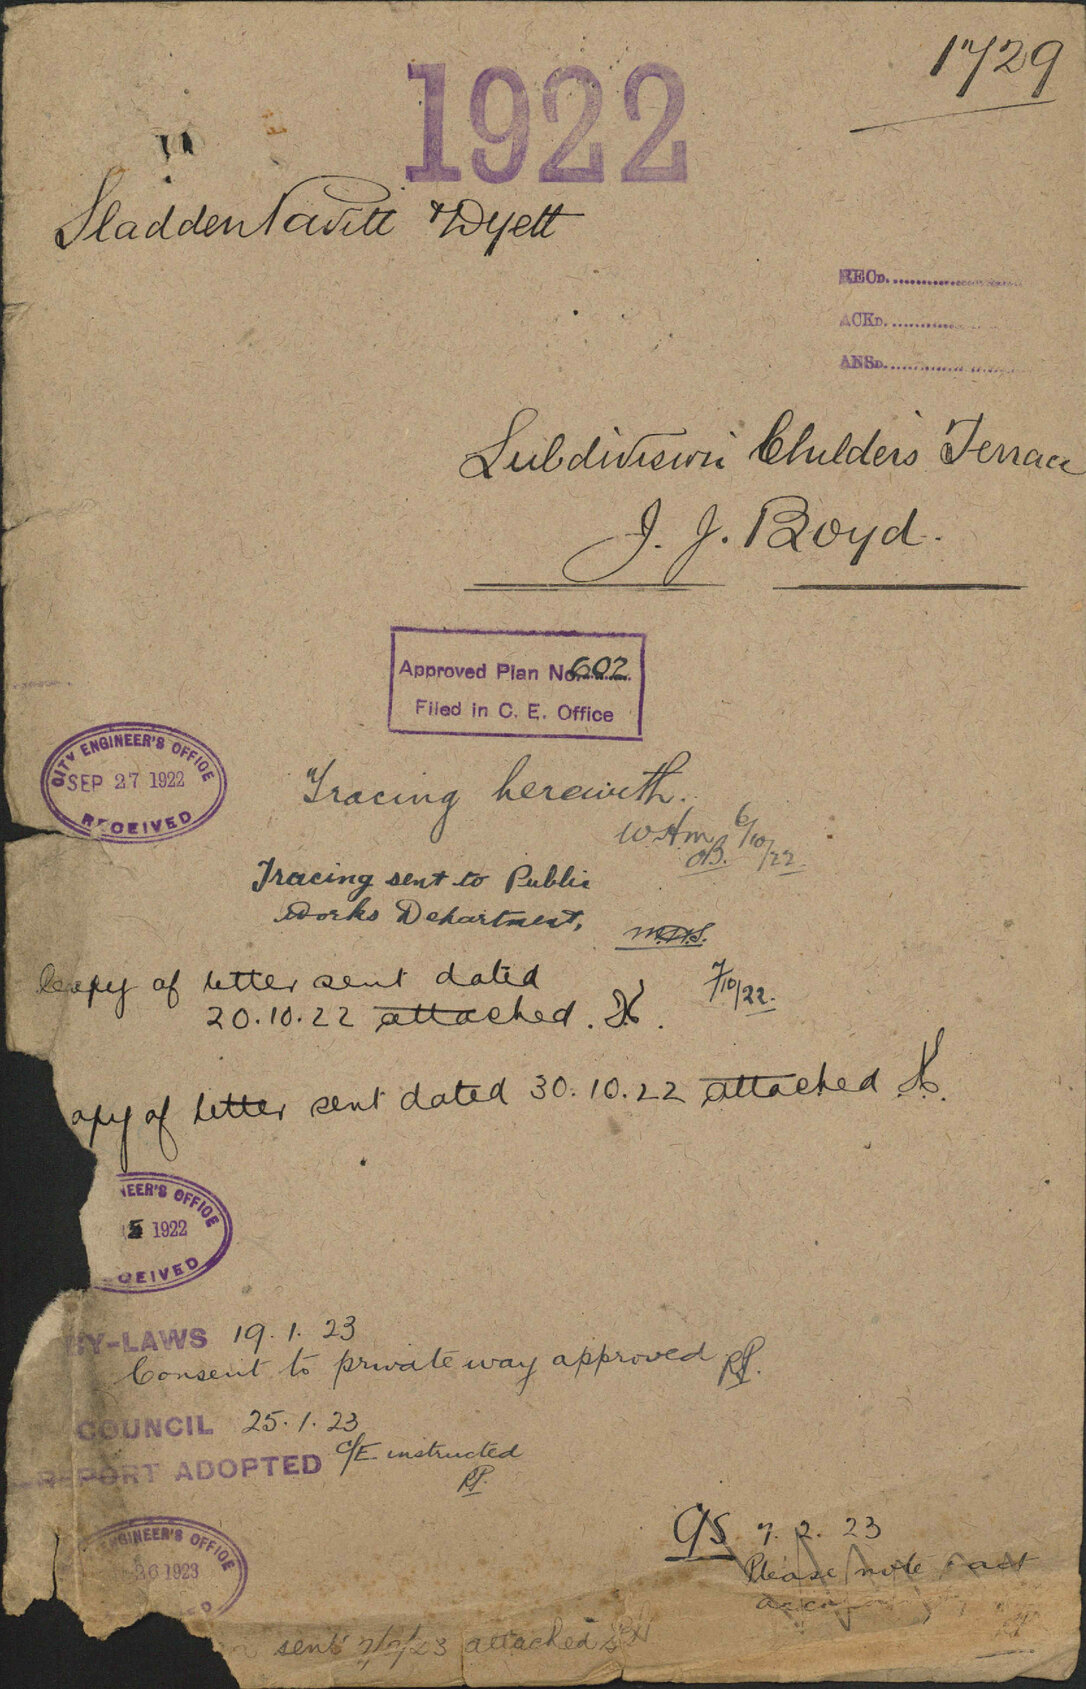 1729
1922
Sladden Navitt & Dyett
RECD.
ACKD.
ANSD.
Subdivision Childers Terrace
J. J. Boyd.
Approved Plan No. 602
Filed in C. E. Office
CITY ENGINEER'S OFFICE
SEP 27 1922
RECEIVED
Tracing herewith.
WHM 6/10/22
Tracing sent to Public
Works Department,
7/10/22.
Copy of letter sent dated
20.10.22 attached.
opy of letter sent dated 30.10.22 attached
NEER'S OFFICE
5 1922
CEIVED
BY-LAWS 19.1.23
Consent to private way approved RP.
COUNCIL 25.1.23
REPORT ADOPTED C/E instructed
RP.
GINEER'S OFFICE
26 1923
D
C/S 7.2.23
Please note & act
sent 7/2/23 attached